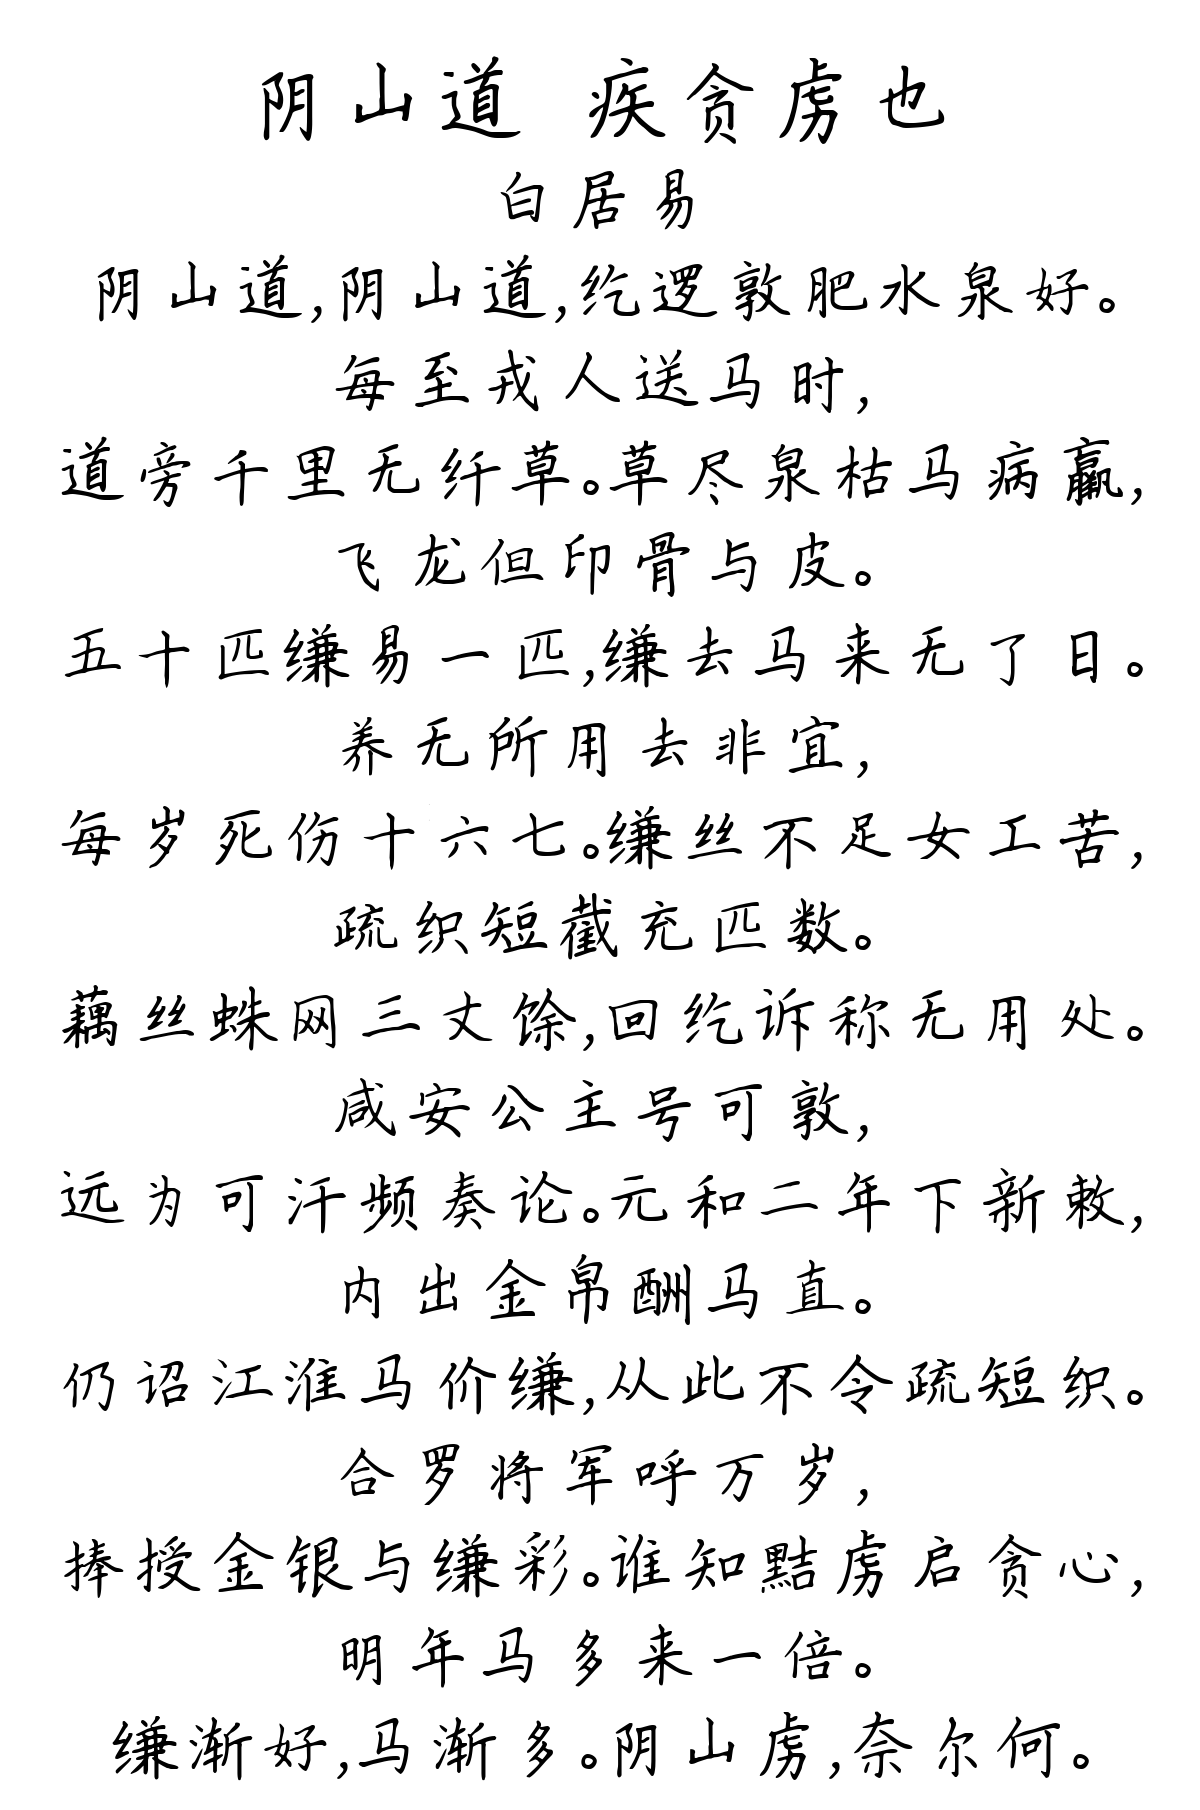 阴山道 疾贪虏也
白居易
阴山道,阴山道,纥逻敦肥水泉好。
每至戎人送马时,
道旁千里无纤草。草尽泉枯马病羸,
飞龙但印骨与皮。
五十匹缣易一匹,缣去马来无了日。
养无所用去非宜,
每岁死伤十六七。缣丝不足女工苦,
疏织短截充匹数。
藕丝蛛网三丈馀,回纥诉称无用处。
咸安公主号可敦,
远为可汗频奏论。元和二年下新敕,
内出金帛酬马直。
仍诏江淮马价缣,从此不令疏短织。
合罗将军呼万岁,
捧授金银与缣彩。谁知黠虏启贪心,
明年马多来一倍。
缣渐好,马渐多。阴山虏,奈尔何。